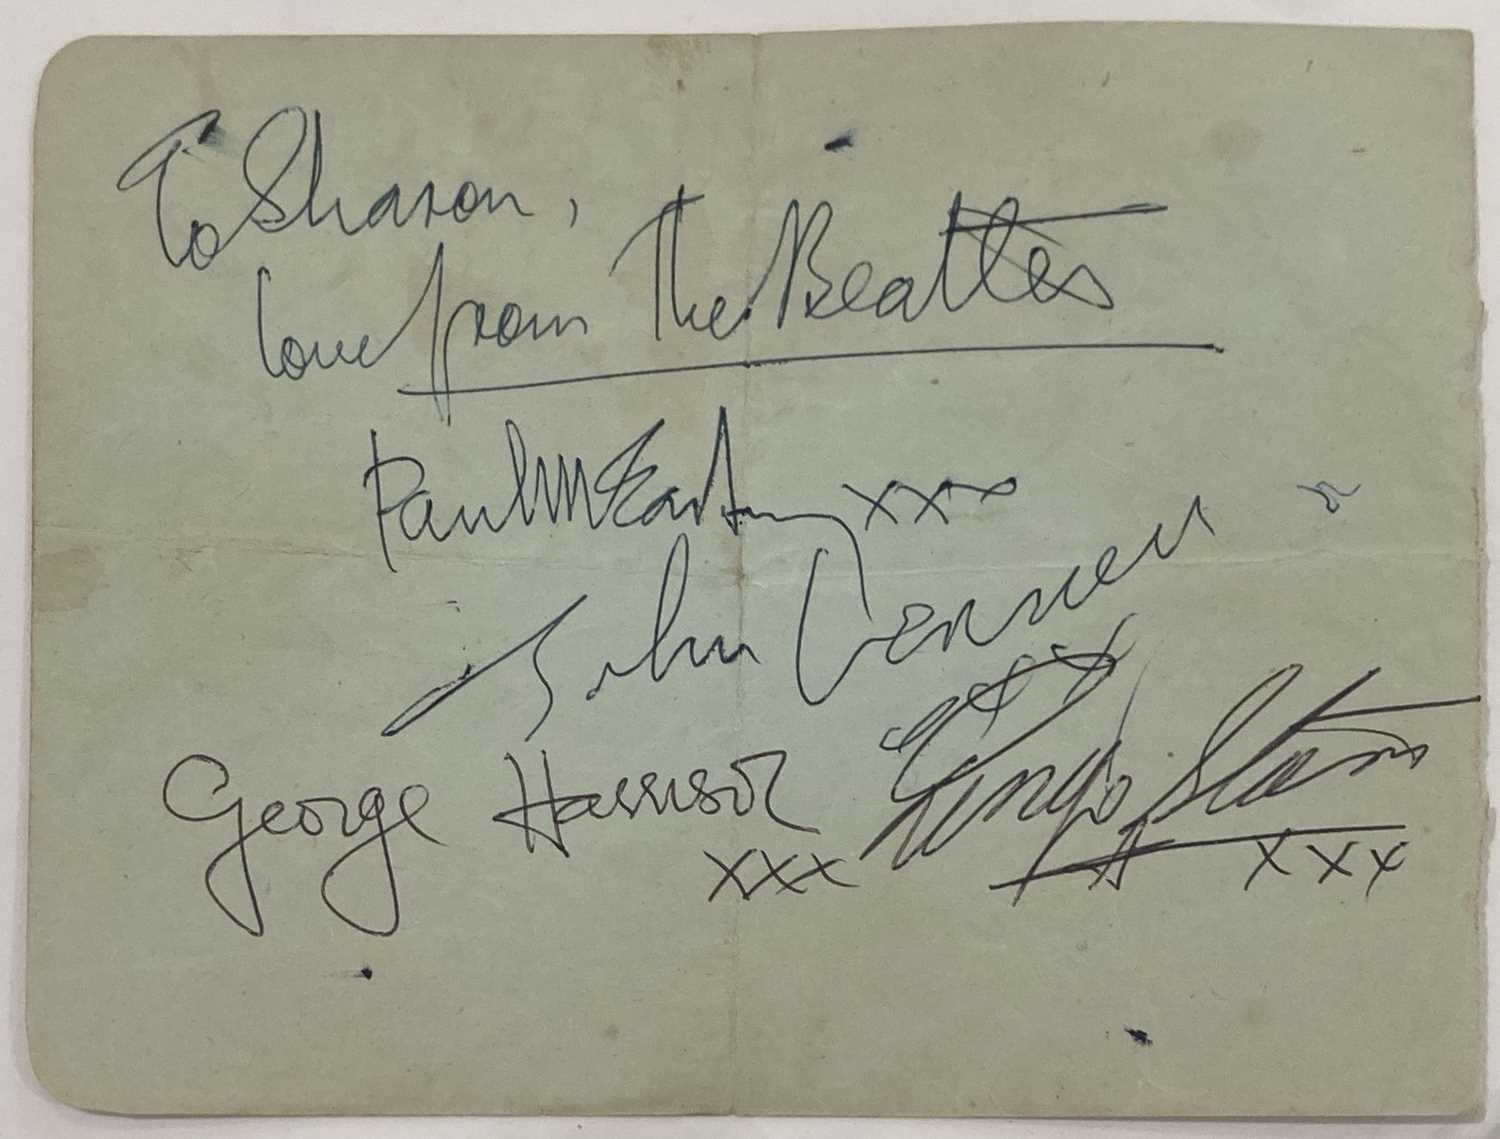 To Sharon,
love from The Beatles
Paul McCartney xxx
John Lennon
xx
George Harrison xxx
Ringo Starr xxx